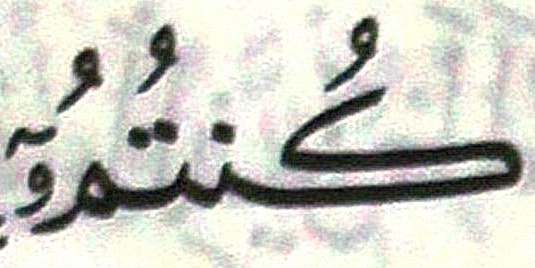 كُنتُمُۥٓ